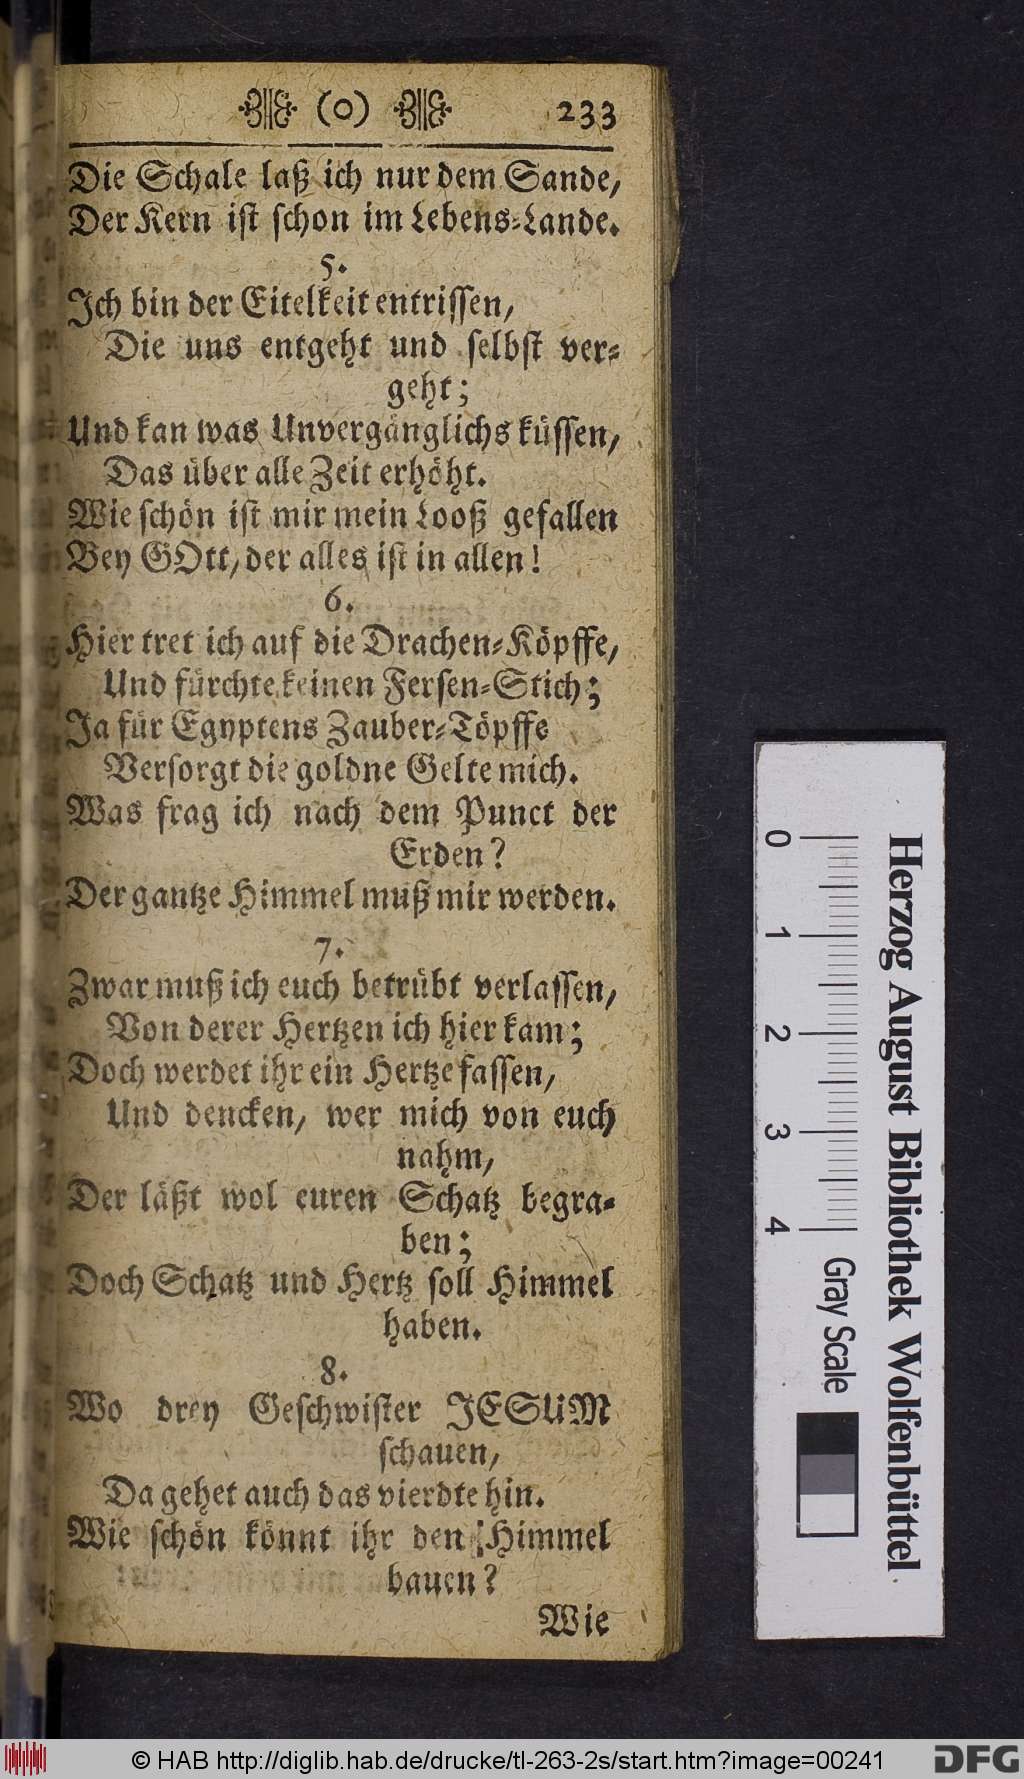 (o) 233
Die Schale laß ich nur dem Sande,
Der Kern ist schon im Lebens-Lande.
5.
Ich bin der Eitelkeit entrissen,
Die uns entgeht und selbst ver-
geht;
Und kan was Unvergänglichs küssen,
Das über alle Zeit erhöht.
Wie schön ist mir mein Looß gefallen
Bey GOtt, der alles ist in allen!
6.
Hier tret ich auf die Drachen-Köpffe,
Und fürchte keinen Fersen-Stich;
Ja für Egyptens Zauber-Töpffe
Versorgt die goldne Gelte mich.
Was frag ich nach dem Punct der
Erden?
Der gantze Himmel muß mir werden.
7.
Zwar muß ich euch betrübt verlassen,
Von derer Hertzen ich hier kam;
Doch werdet ihr ein Hertze fassen,
Und dencken, wer mich von euch
nahm,
Der läßt wol euren Schatz begra-
ben;
Doch Schatz und Hertz soll Himmel
haben.
8.
Wo drey Geschwister JESUM
schauen,
Da gehet auch das vierdte hin.
Wie schön könnt ihr den Himmel
bauen?
Wie
0 1 2 3 4
Gray Scale
Herzog August Bibliothek Wolfenbüttel
© HAB http://diglib.hab.de/drucke/tl-263-2s/start.htm?image=00241
DFG